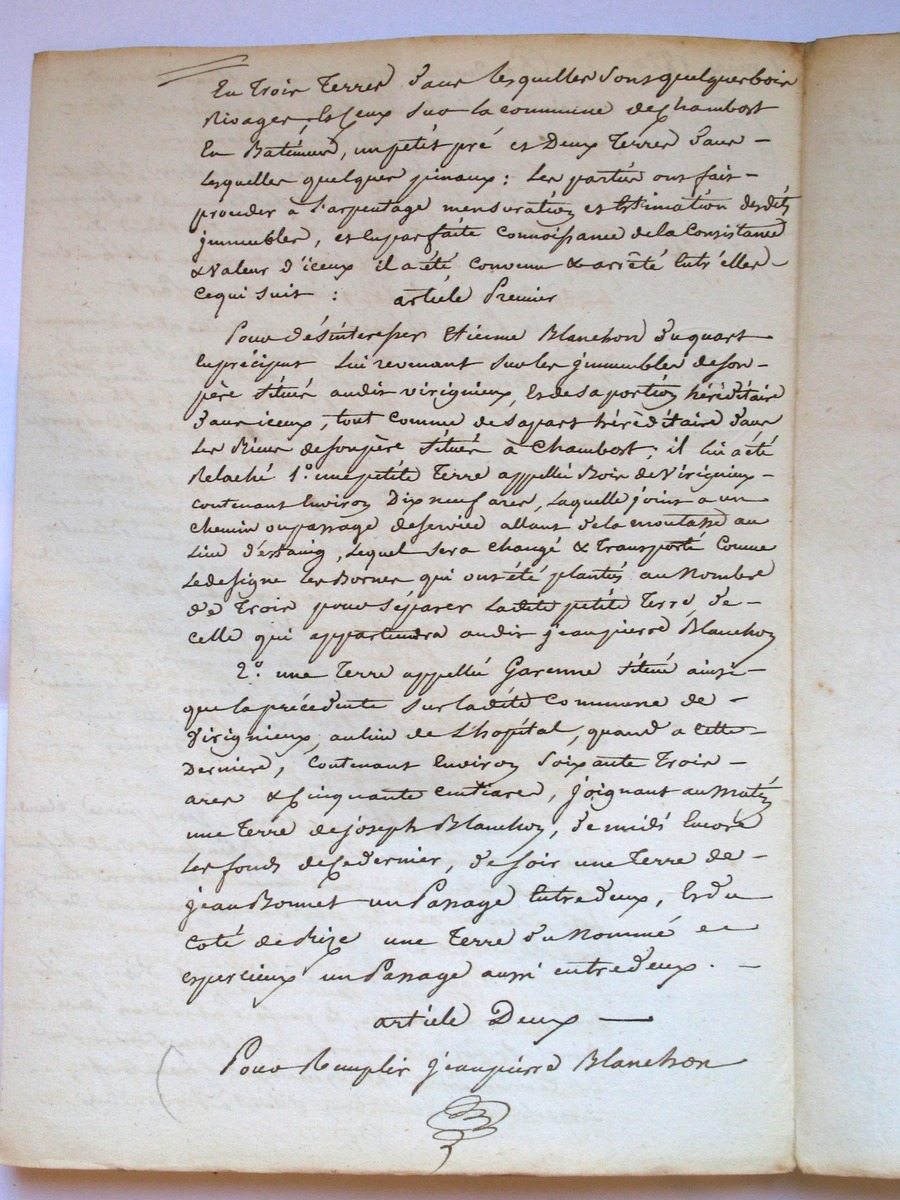 En trois terres dans lesquelles sont quelques bois
Rivages, et ceux sur la commune de Chambost
En Batiment, un petit pré et Deux Terres dans
lesquelles quelques pinaux : Les parties ont fait
proceder à l'arpentage mensuration et Estimation desdits
immeubles, et en parfaite connoissance de la Consistance
& valeur d'iceux il a été convenu & arrêté Entr'elles
ce qui suit : article Premier
Pour désinteresser Etienne Blanchon du quart
en préciput lui revenant sur les immeubles de son
père situés audit virignieux, et de sa portion héréditaire
dans iceux, tout comme de sa part héréditaire dans
Les Biens de son père situés à Chambost, il lui a été
Relaché 1.° une petite Terre appellée Bois de Virignieux
contenant Environ Dix neuf ares, Laquelle joint a un
chemin ou passage de service allant de la moutasse au
Lieu , Lequel sera changé & transporté Comme
Le designe Les Bornes qui ont été plantés au Nombre
de Trois pour séparer Ladite petite Terre de
celle qui appartiendra audit jean pierre Blanchon
2.° une Terre appellée Garenne située ainsi
que la précédente sur ladite Commune de
Virignieux, au lieu de L'hopital, quand a cette
Derniere, Contenant Environ Soixante Trois
ares & Cinquante centiares, joignant au matin
une Terre de joseph Blanchon, de midi Encore
Les fonds de Ce dernier, de soir une Terre de
jean Bonnet un Passage Entredeux, Et du
Coté de Bize une Terre du Nommé
un Passage aussi entredeux.
article Deux
Pour Remplir jean pierre Blanchon